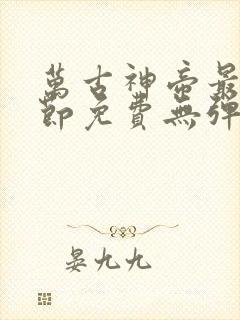 萬古神帝最
節免費無彈
晏九九